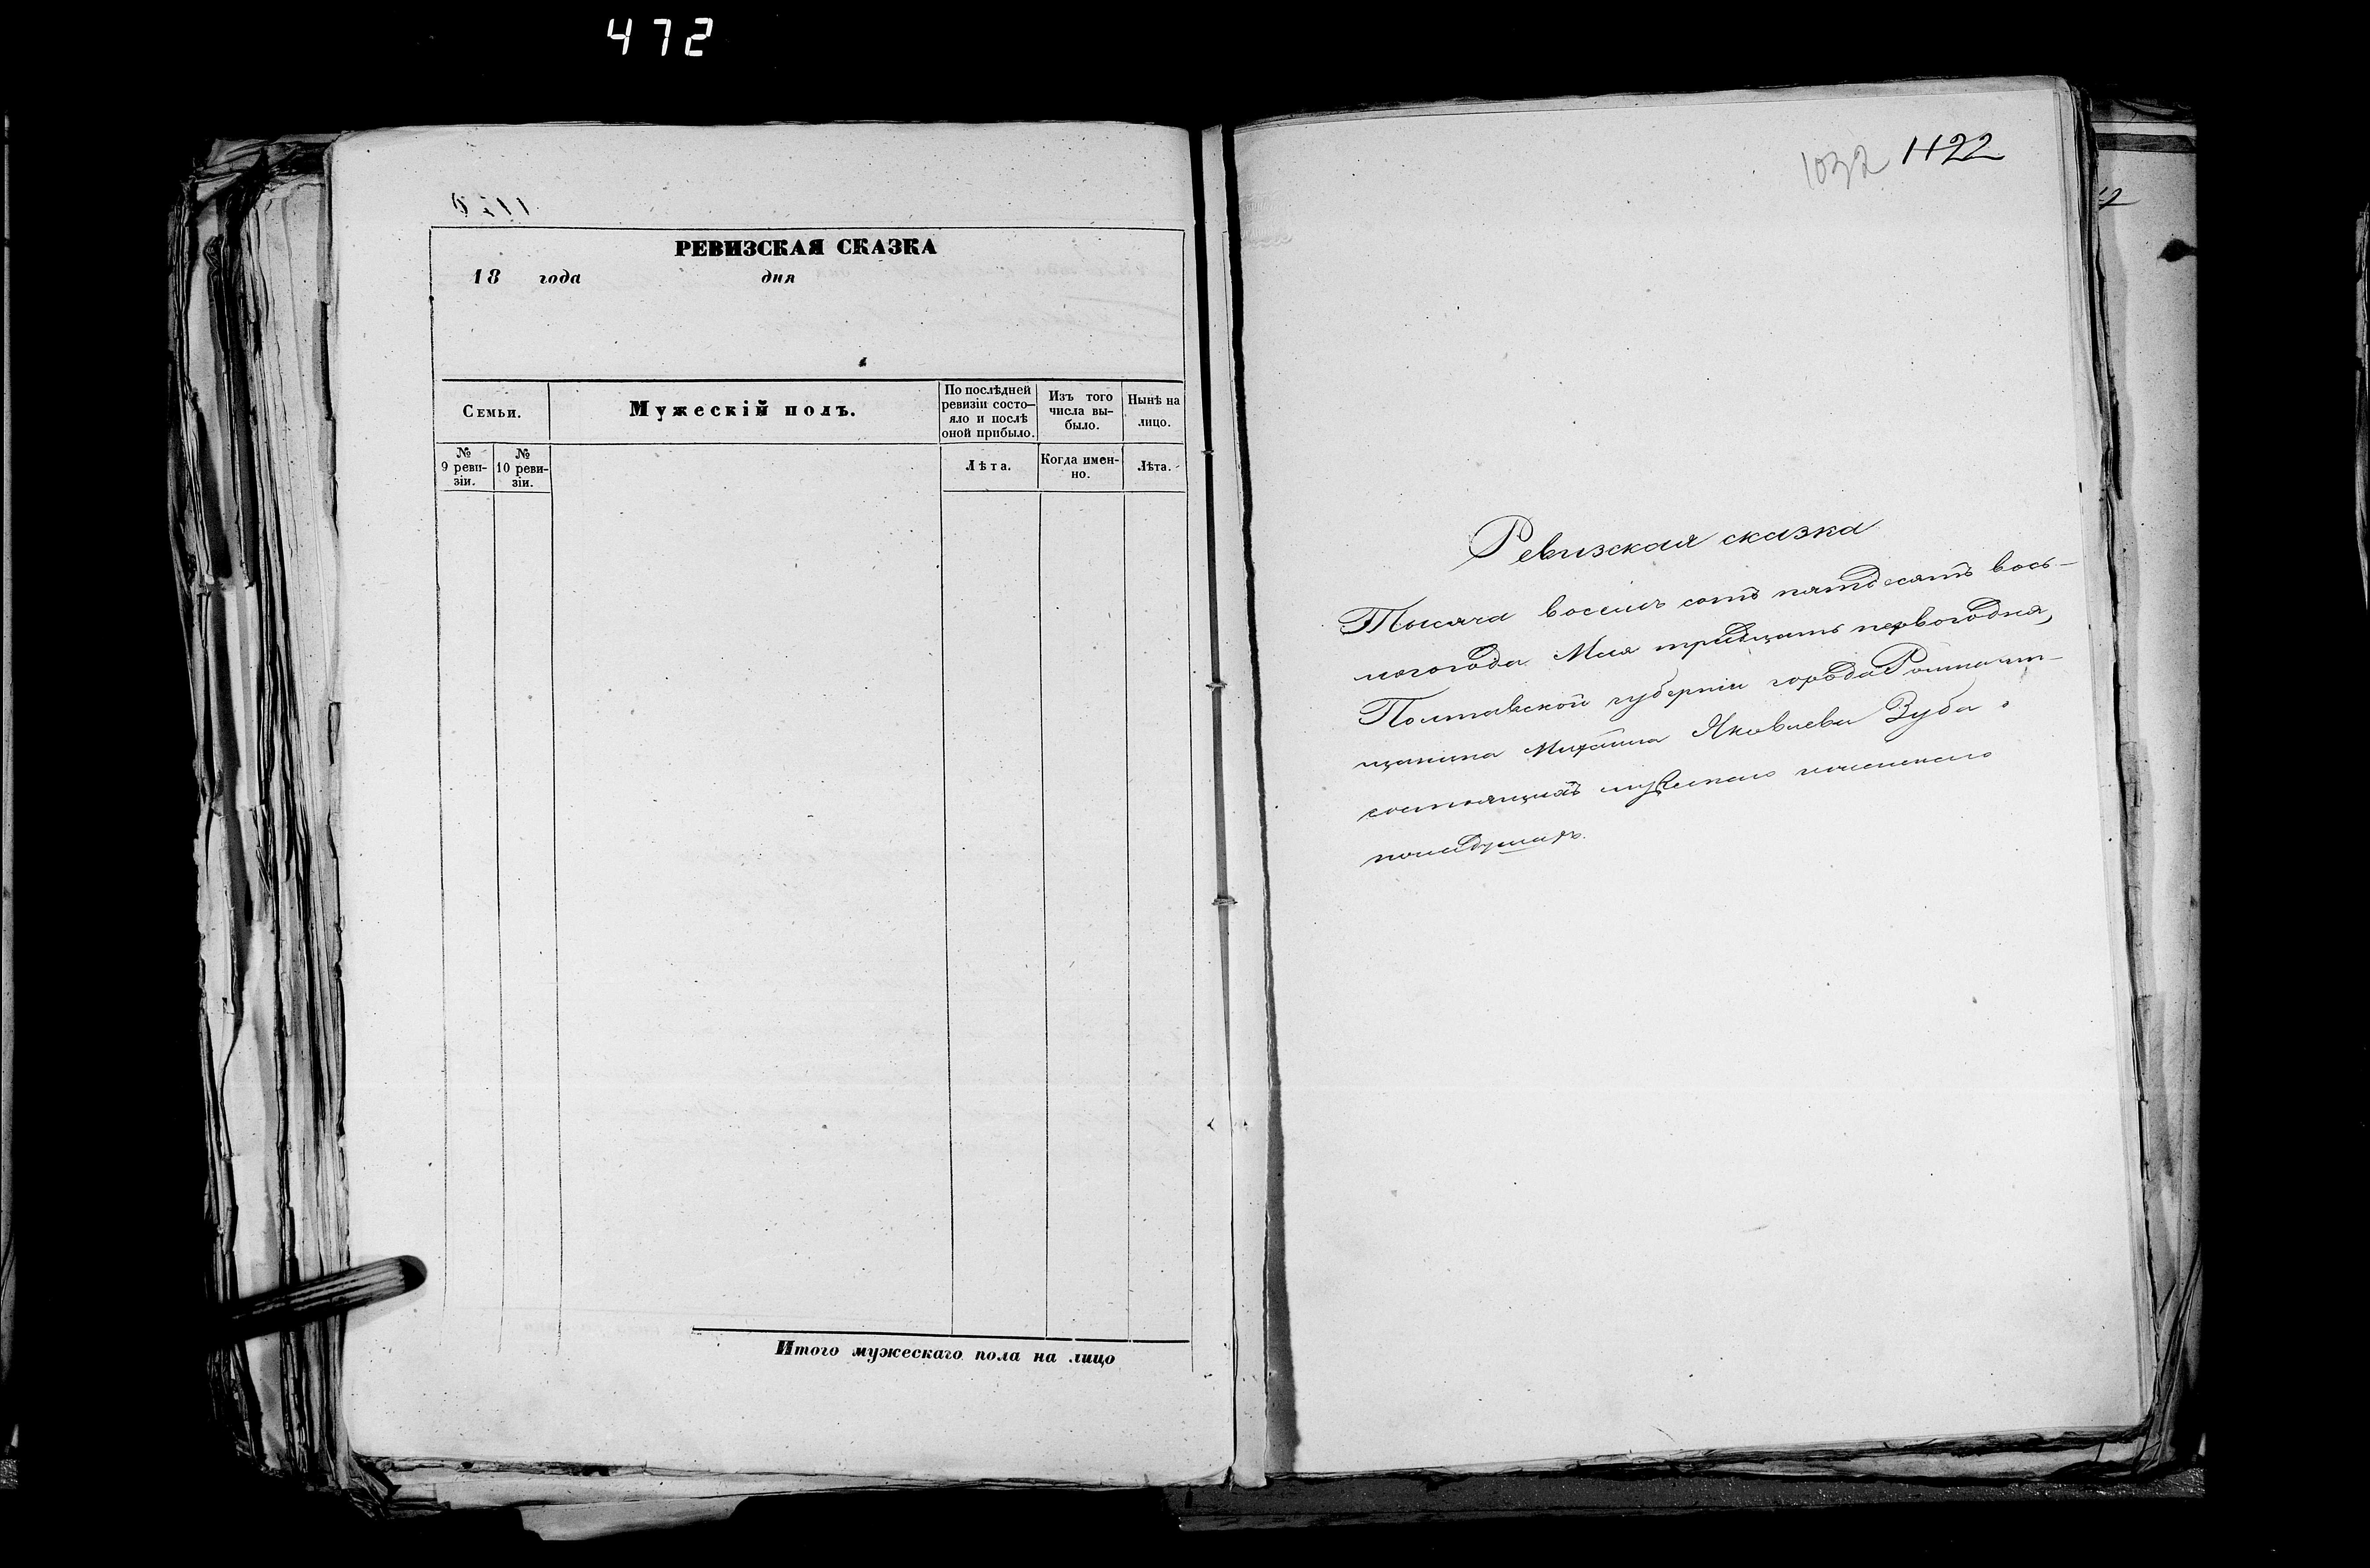 472
РЕВИЗСКАЯ СКАЗКА
18 года дня
Семьи.
Мужескій полъ.
По послѣдней
ревизіи состо—
яло и послѣ
оной прибыло.
Изъ того
числа вы-
было.
Нынѣ на
лицо.
№
9 реви-
зіи.
№
10 реви-
зіи.
Лѣта.
Когда имен-
но.
Лѣта.
Итого мужескаго пола на лицо
1032 1122
Ревизская сказка
Тысяча восемь сотъ пятдесятъ вось-
мого года Мая тридцать первого дня,
Полтавской губерніи города
Михаила Яковлева Зуба
состоящихъ мужескаго